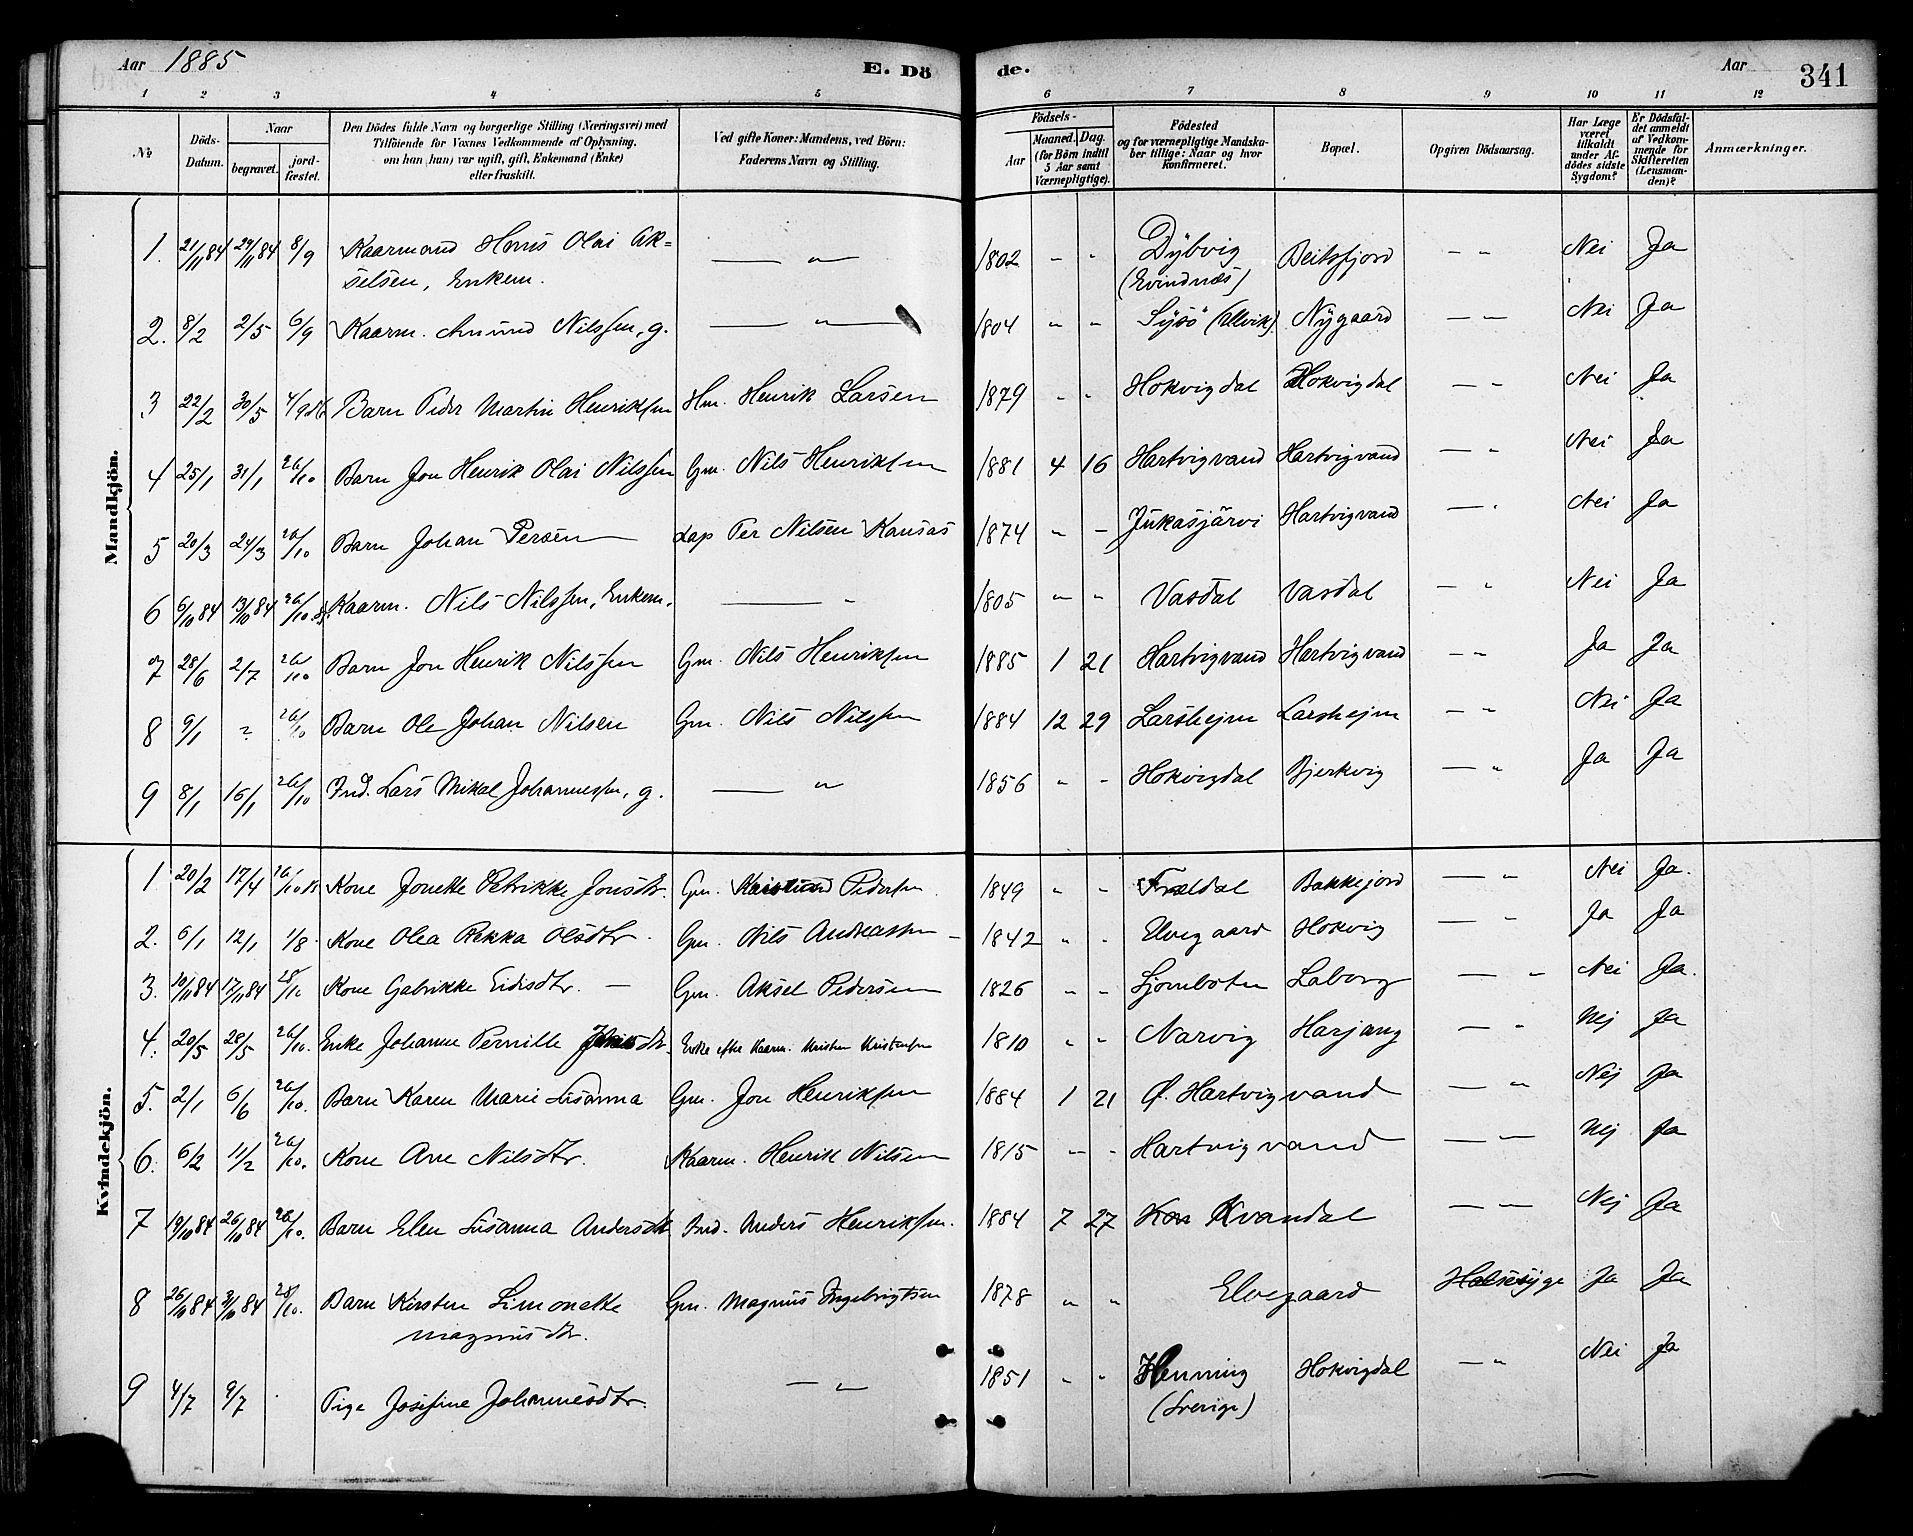 Aar 1885 E. Dö de. Aar 341
1 2 3 4 5 6 7 8 9 10 11 12
No Döds-Datum. Naar begravet. jord-fæstet. Den Dödes fulde Navn og borgerlige Stilling (Næringsvei) med Tilföiende for Voxnes Vedkommende af Oplysning, om han (hun) var ugift, gift, Enkemand (Enke) eller fraskilt. Ved gifte Koner: Mandens, ved Börn: Faderens Navn og Stilling. Födsels- Aar Maaned. Dag. (for Börn indtil 5 Aar samt Værnepligtige). Födested og for værnepligtige Mandskaber tillige: Naar og hvor Konfirmeret. Bopæl. Opgiven Dödsaarsag. Har Læge været tilkaldt under Afdödes sidste Sygdom? Er Dödsfaldet anmeldt af Vedkommende for Skifteretten (Lensmanden)? Anmærkninger.
Mandkjön.
1. 21/11 84 29/11 84 8/9 Kaarmand Hans Olai Ak=
selsen, Enkem. — " 1802 " " Dybvig (Evindnæs) Beitsfjord — " Nei Ja
2. 8/2 2/5 6/9 Kaarm. Amund Nilssen, g. — " — 1804 " " Sysö (Ulvik) Nygaard — " Nei Ja
3 22/2 30/5 4/9 86 Barn Peder Martin Henriksen Hm. Henrik Larsen 1879 " " Hokvigdal Hokvigdal — " Nei Ja
4 25/1 31/1 26/10 Barn Jon Henrik Olai Nilssen Gm. Nils Henriksen 1881 4 16 Hartvigvand Hartvigvand — " Nei Ja
5 20/3 24/3 26/10 Barn Johan Persen Lap Per Nilsen Kansas 1874 " " Jukasjärvi Hartvigvand — " Nei Ja
6 6/10 84 13/10 84 26/10 85. Kaarm. Nils Nilssen, Enkem. — " 1805 " " Vasdal Vasdal — " Nei Ja
7 28/6 2/7 26/10 Barn Jon Henrik Nilssen Gm. Nils Henriksen 1885 1 21 Hartvigvand Hartvigvand — " Ja Ja
8 9/1 " 26/10 Barn Ole Johan Nilsen Gm. Nils Nilssen 1884 12 29 Larshejm Larshejm — " Nei Ja
9 8/1 16/1 26/10 Ind. Lars Mikal Johannessen, g. — " 1856 " " Hokvigdal Bjerkvig — " Ja Ja
Kvindekjön.
1. 20/2 17/4 26/10 85 Kone Jonette Petrikke Jonsdtr. Gm. Kristian Pedersen 1849 " " Fraldal Bakkejord — " Nei Ja.
2. 6/1 12/1 1/8. Kone Olea Rekka Olsdtr. Gm. Nils Andreassen 1842 " " Elvegaard Hokvig — " Ja Ja
3. 10/11 84 17/11 84 28/10 Kone Gabrikke Eidisdtr. — Gm. Aksel Pedersen 1826 " " Sjombotn Laberg — " Nei Ja.
4. 20/5 28/5 26/10. Enke Johanne Pernille dtr. Enke efter Kaarm. Kristen Kristensen 1810 " " Narvig Harjang — " Nej Ja
5. 2/1 6/6 26/10. Barn Karen Marie Susanna Gm. Jon Henriksen 1884 1 21 Ø. Hartvigvand — " Nej Ja
6. 6/2 11/2 26/10. Kone Ane Nilsdtr. Kaarm. Henrik Nilsen 1815 " " Hartvigvand — " Nej Ja
7 19/10 84 26/10 84 28/10. Barn Elen Susanna Andersdtr Ind. Anders Henriksen. 1884 7 27 Kvandal — " Nej Ja
8 26/10 84 3/10 84 28/10. Barn Kirsten Simonette
Magnusdtr. Gm. Magnus Ingebrigtsen 1878 " " Elvegaard Halssyge Ja Ja
9 4/7 9/7 . Pige Josefine Johannesdtr. — " 1851 " " Henning (Sverige) Hokvigdal — " Nei Ja